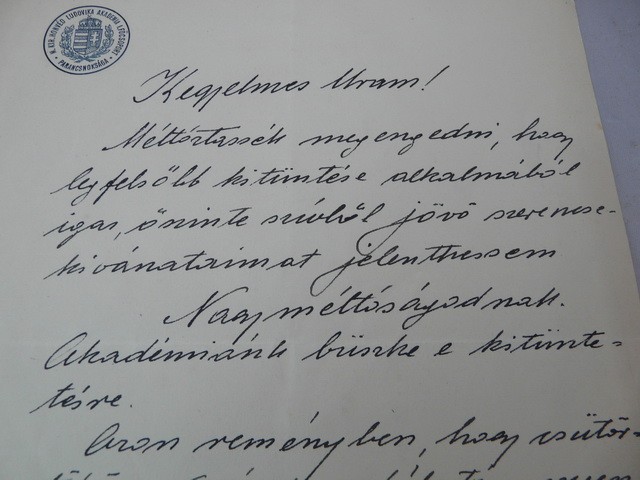 M. KIR. HONVÉD LUDOVIKA AKADÉMIA FŐCSOPORT
PARANCSNOKSÁGA
Kegyelmes Uram!
Méltóztassék megengedni, hogy
legfelsőbb kitüntése alkalmából
igaz, őszinte szívből jövő szerencse-
kívánataimat jelenthessem
Nagyméltóságodnak.
Akadémiánk büszke e kitünte-
tésre.
Azon reményben, hogy csütör-